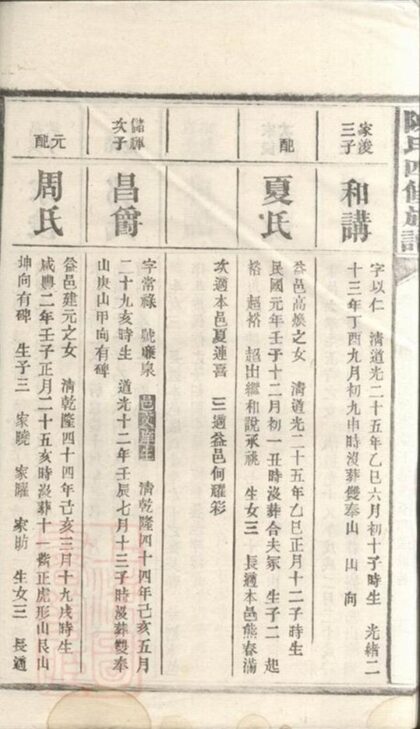 陳氏四修族譜
家浚
三子
和講
字以仁 清道光二十五年乙巳六月初十子時生 光緒二
十三年丁酉九月初九申時沒葬雙奉山 山 向
配
夏氏
益邑高煥之女 清道光二十五年乙巳正月十二子時生
民國元年壬子十二月初一丑時沒葬合夫冢 生子二 起
裕 超裕 超出繼和說承祧 生女三 長適本邑熊春滿
次適本邑夏連喜 三適益邑何耀彩
儲輝
次子
昌嘗
字常祿 號廉泉 邑文庠生 清乾隆四十四年己亥五月
二十九亥時生 道光十二年壬辰七月十三子時沒葬雙奉
山庚山甲向有碑
元配
周氏
益邑建元之女 清乾隆四十四年己亥三月十九戌時生
咸豐二年壬子正月二十五亥時沒葬十一衝正虎形山艮山
坤向有碑 生子三 家曉 家躍 家助 生女三 長適